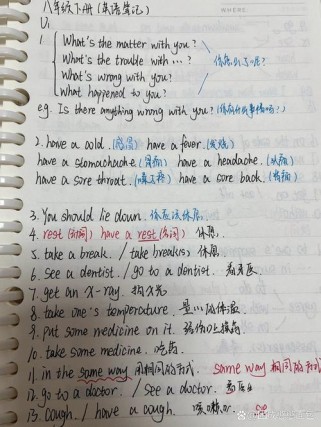 八年级下册（英语笔记）
U1
1. What's the matter with you?
What's the trouble with ...?
What's wrong with you?
What happened to you?
你怎么了呢?
eg. Is there anything wrong with you? (你有什么事情吗?)
2. have a cold. (感冒) have a fever. (发烧)
have a stomachache. (胃痛) have a headache. (头痛)
have a sore throat. (嗓子疼) have a sore back. (背痛)
3. You should lie down. 你应该休息.
4. rest (动词) have a rest (名词) 休息.
5. take a break. / take breaks(s) 休息.
6. see a dentist. / go to a dentist. 看牙医
7. get an X-ray. 拍X光
8. take one's temperature. 量……的体温
9. put some medicine on it. 给伤口上药
10. take some medicine. 吃药
11. in the same way 用相同的方式. same way 相同的方式
12. go to a doctor. / see a doctor. 看医生
13. Cough. / have a cough. 咳嗽.